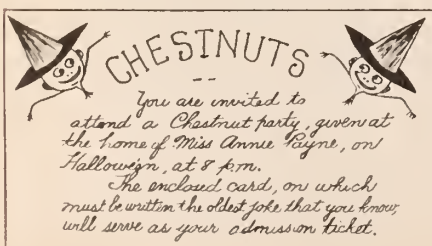 CHESTNUTS
You are invited to
attend a Chestnut party, given at
the home of Miss Annie Payne, on
Hallowe'en, at 8 p.m.
The enclosed card, on which
must be written the oldest joke that you know,
will serve as your admission ticket.